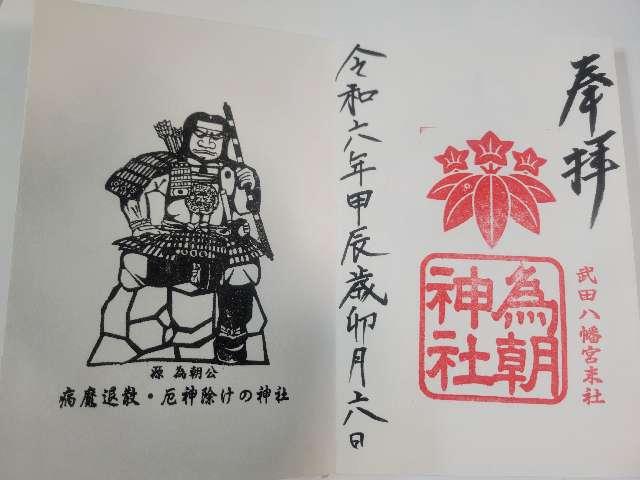 奉拝
武田八幡宮末社
為朝
神社
令和六年甲辰歳卯月十八日
源 為朝公
病魔退散・厄神除けの神社